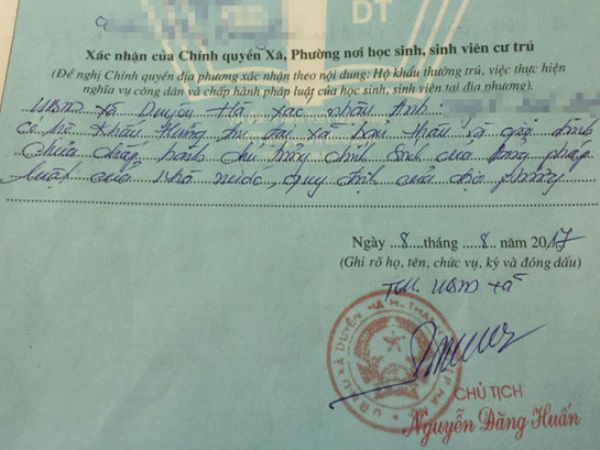 DT
Xác nhận của Chính quyền Xã, Phường nơi học sinh, sinh viên cư trú
(Đề nghị Chính quyền địa phương xác nhận theo nội dung: Hộ khẩu thường trú, việc thực hiện
nghĩa vụ công dân và chấp hành pháp luật của học sinh, sinh viên tại địa phương)
UBND xã Duyên Hà xác nhận Anh:
có hộ khẩu thường trú tại xã bản thân và gia đình
chưa chấp hành chủ trương chính sách của đảng pháp
luật của Nhà nước, quy định của địa phương
Ngày 8 tháng 8 năm 2017
(Ghi rõ họ, tên, chức vụ, ký và đóng dấu)
TM. UBND xã
CHỦ TỊCH
Nguyễn Đăng Huấn